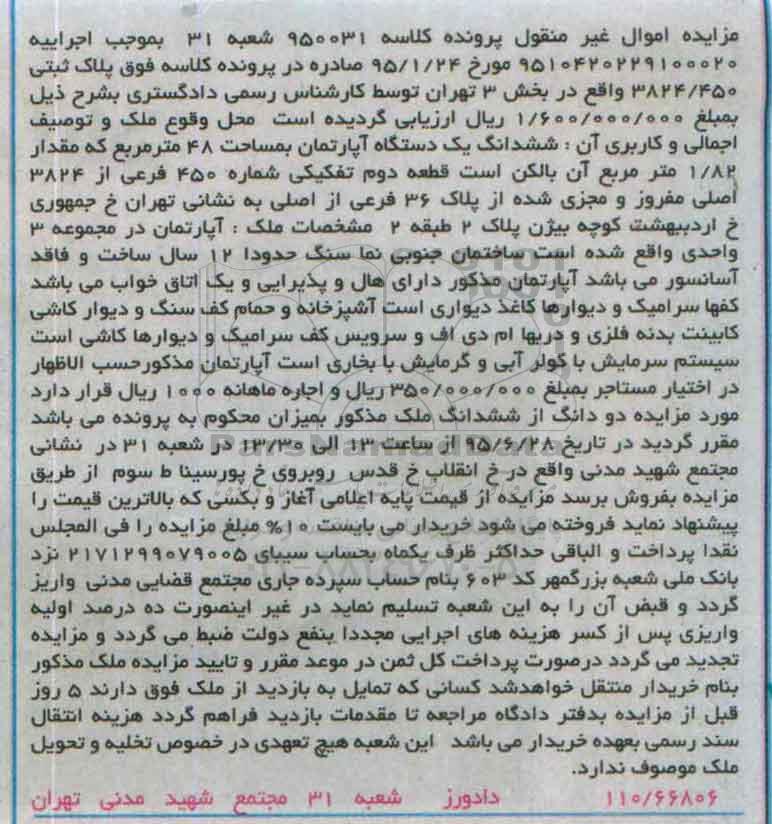 مزایده اموال غیر منقول پرونده کلاسه ۹۵۰۰۳۱ شعبه ۳۱ بموجب اجراییه
۹۵۱۰۴۲۰۲۲۹۱۰۰۰۲۰ مورخ ۹۵/۱/۲۴ صادره در پرونده کلاسه فوق پلاک ثبتی
۳۸۲۴/۴۵۰ واقع در بخش ۳ تهران توسط کارشناس رسمی دادگستری بشرح ذیل
بمبلغ ۱/۶۰۰/۰۰۰/۰۰۰ ریال ارزیابی گردیده است محل وقوع ملک و توصیف
اجمالی و کاربری آن : ششدانگ یک دستگاه آپارتمان بمساحت ۴۸ مترمربع که مقدار
۱/۸۲ متر مربع آن بالکن است قطعه دوم تفکیکی شماره ۴۵۰ فرعی از ۳۸۲۴
اصلی مفروز و مجزی شده از پلاک ۳۶ فرعی از اصلی به نشانی تهران خ جمهوری
خ اردبیهشت کوچه بیژن پلاک ۲ طبقه ۲ مشخصات ملک : آپارتمان در مجموعه ۳
واحدی واقع شده است ساختمان جنوبی نما سنگ حدودا ۱۲ سال ساخت و فاقد
آسانسور می باشد آپارتمان مذکور دارای هال و پذیرایی و یک اتاق خواب می باشد
کفها سرامیک و دیوارها کاغذ دیواری است آشپزخانه و حمام کف سنگ و دیوار کاشی
کابینت بدنه فلزی و دربها ام دی اف و سرویس کف سرامیک و دیوارها کاشی است
سیستم سرمایش با کولر آبی و گرمایش با بخاری است آپارتمان مذکورحسب الاظهار
در اختیار مستاجر بمبلغ ۳۵۰/۰۰۰/۰۰۰ ریال و اجاره ماهانه ۱۰۰۰ ریال قرار دارد
مورد مزایده دو دانگ از ششدانگ ملک مذکور بمیزان محکوم به پرونده می باشد
مقرر گردید در تاریخ ۹۵/۶/۲۸ از ساعت ۱۳ الی ۱۳/۳۰ در شعبه ۳۱ در نشانی
مجتمع شهید مدنی واقع در خ انقلاب خ قدس روبروی خ پورسینا ط سوم از طریق
مزایده بفروش برسد مزایده از قیمت پایه اعلامی آغاز و بکسی که بالاترین قیمت را
پیشنهاد نماید فروخته می شود خریدار می بایست ۱۰% مبلغ مزایده را فی المجلس
نقدا پرداخت و الباقی حداکثر ظرف یکماه بحساب سیبای ۲۱۷۱۲۹۹۰۷۹۰۰۵ نزد
بانک ملی شعبه بزرگمهر کد ۶۰۳ بنام حساب سپرده جاری مجتمع قضایی مدنی واریز
گردد و قبض آن را به این شعبه تسلیم نماید در غیر اینصورت ده درصد اولیه
واریزی پس از کسر هزینه های اجرایی مجددا بنفع دولت ضبط می گردد و مزایده
تجدید می گردد درصورت پرداخت کل ثمن در موعد مقرر و تایید مزایده ملک مذکور
بنام خریدار منتقل خواهدشد کسانی که تمایل به بازدید از ملک فوق دارند ۵ روز
قبل از مزایده بدفتر دادگاه مراجعه تا مقدمات بازدید فراهم گردد هزینه انتقال
سند رسمی بعهده خریدار می باشد این شعبه هیچ تعهدی در خصوص تخلیه و تحویل
ملک موصوف ندارد.
۱۱۰/۶۶۸۰۶ دادورز شعبه ۳۱ مجتمع شهید مدنی تهران
ParsNamadData